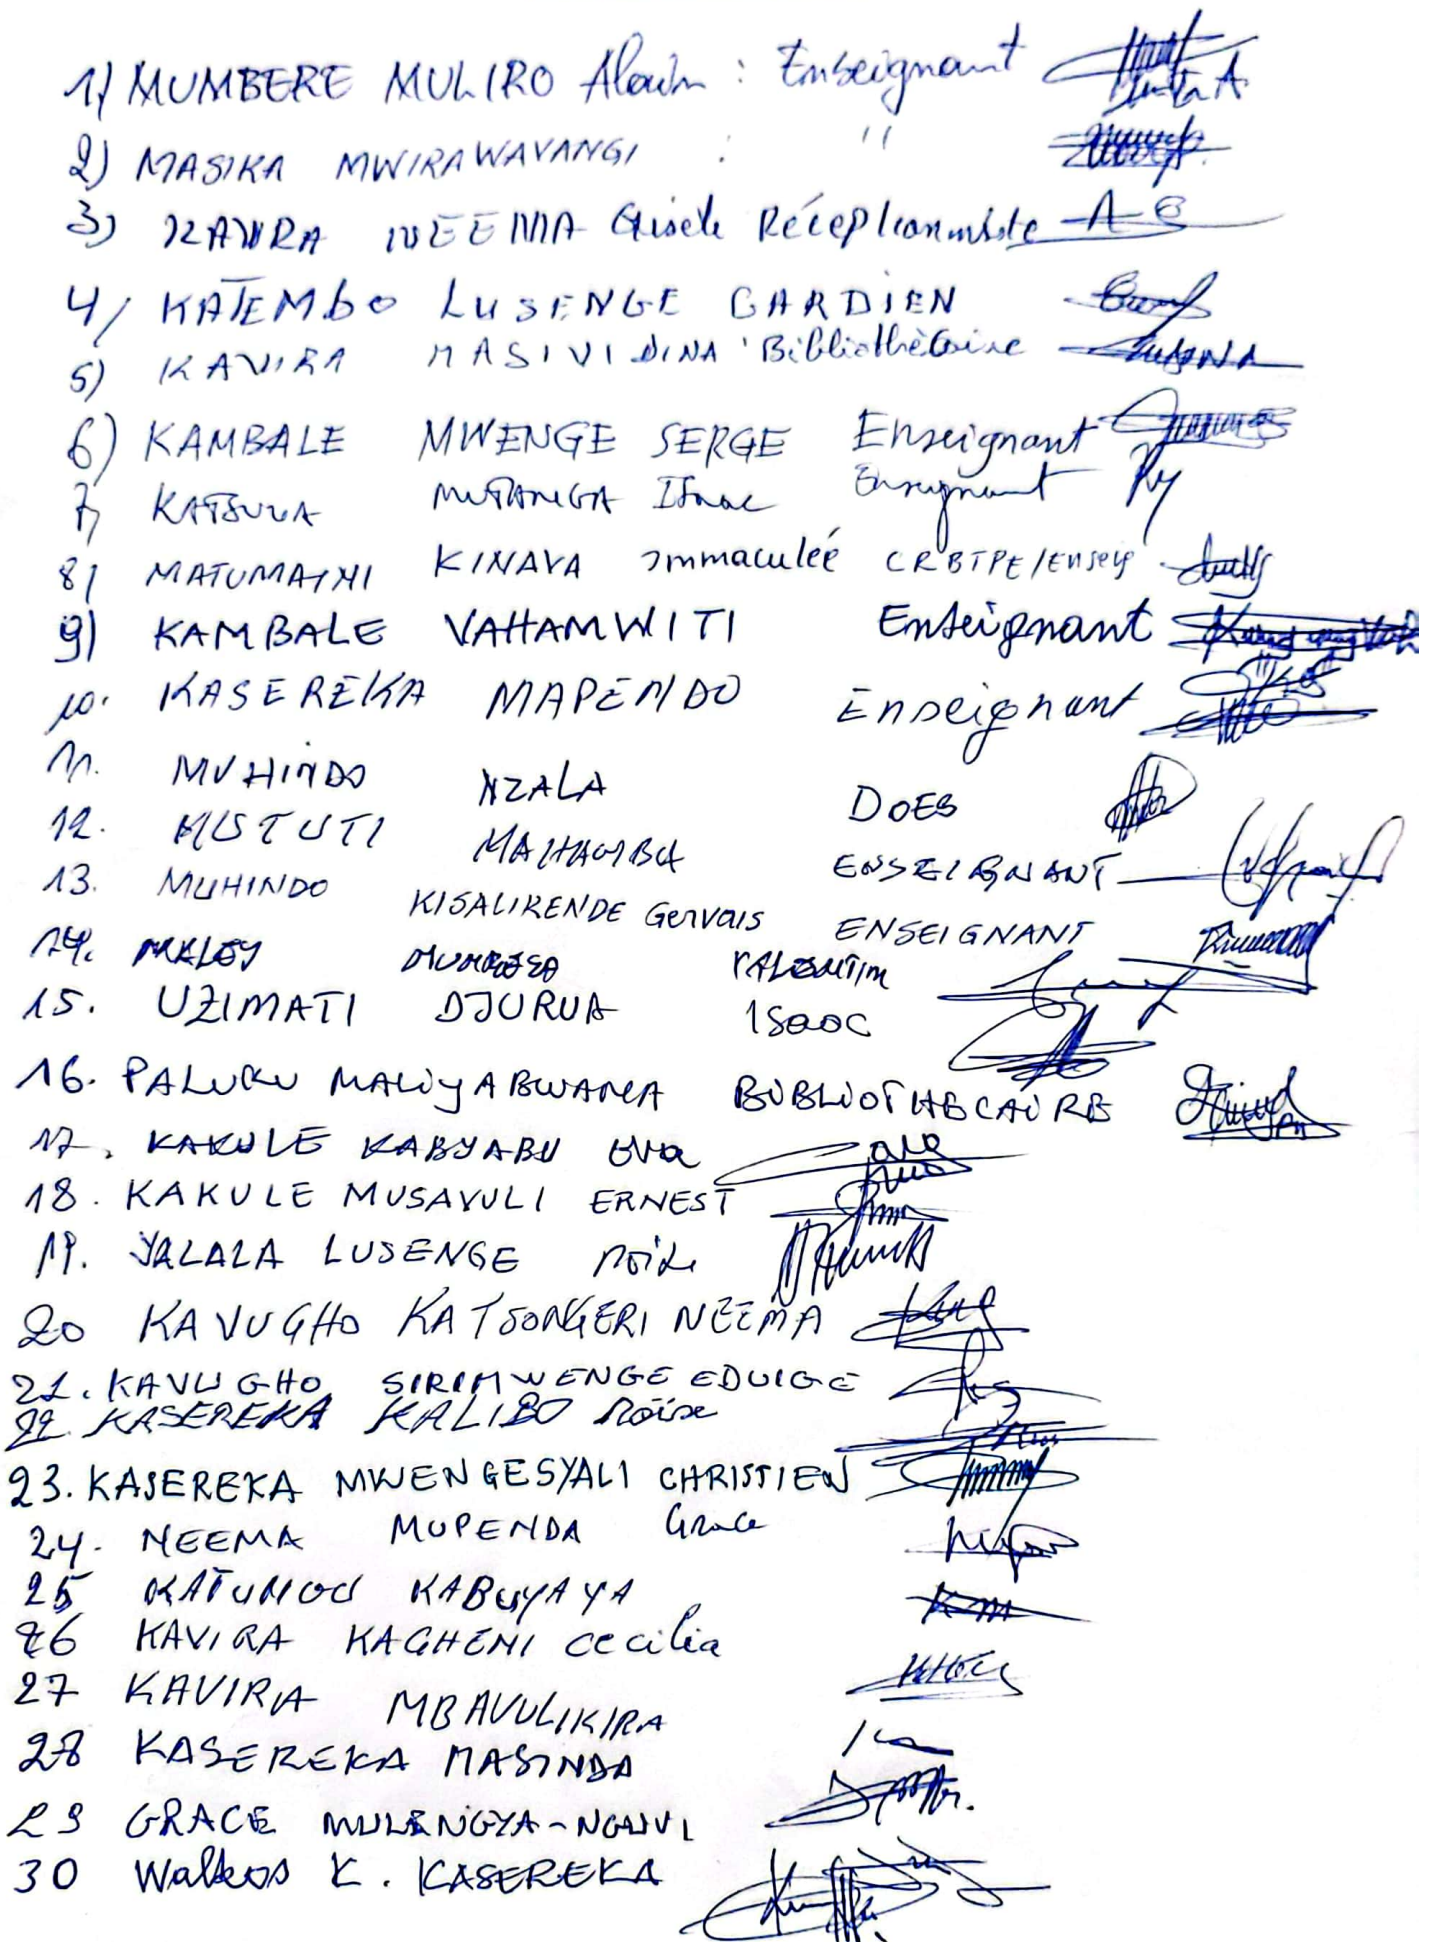 1) MUMBERE MULIRO Alain : Enseignant
2) MASIKA MWIRAWAVANGI : "
3) KAVIRA NEEMA Gisele Réceptionniste
4/ KATEMBO LUSENGE GARDIEN
5) KAVIRA MASIVI DINA Bibliothécaire
6) KAMBALE MWENGE SERGE Enseignant
7) KATSUVA MUTANGA Isaac Enseignant
8) MATUMAINI KINAVA Immaculée CRBTPE/Enseig
9) KAMBALE VAHAMWITI Enseignant
10. KASEREKA MAPENDO Enseignant
11. MUHINDO NZALA DOES
12. ENSEIGNANT
13. MUHINDO KISALIRENDE Gervais ENSEIGNANT
14. VALENTIN
15. UZIMATI DJURUA Isaac
16. PALUKU MALIYABWANA BIBLIOTHECAIRE
17. KAKULE KABYABU
18. KAKULE MUSAVULI ERNEST
19. YALALA LUSENGE
20 KAVUGHO KATSONGERI NEEMA
21. KAVUGHO SIRIMWENGE EDUIGE
22. KASEREKA KALIBO
23. KASEREKA MWENGESYALI CHRISTIEN
24. NEEMA MUPENDA Grace
25 KABUYAYA
26 KAVIRA KAGHENI cecilia
27 KAVIRA MBAVULIKIRA
28 KASEREKA MASINDA
29 GRACE
30 K. KASEREKA